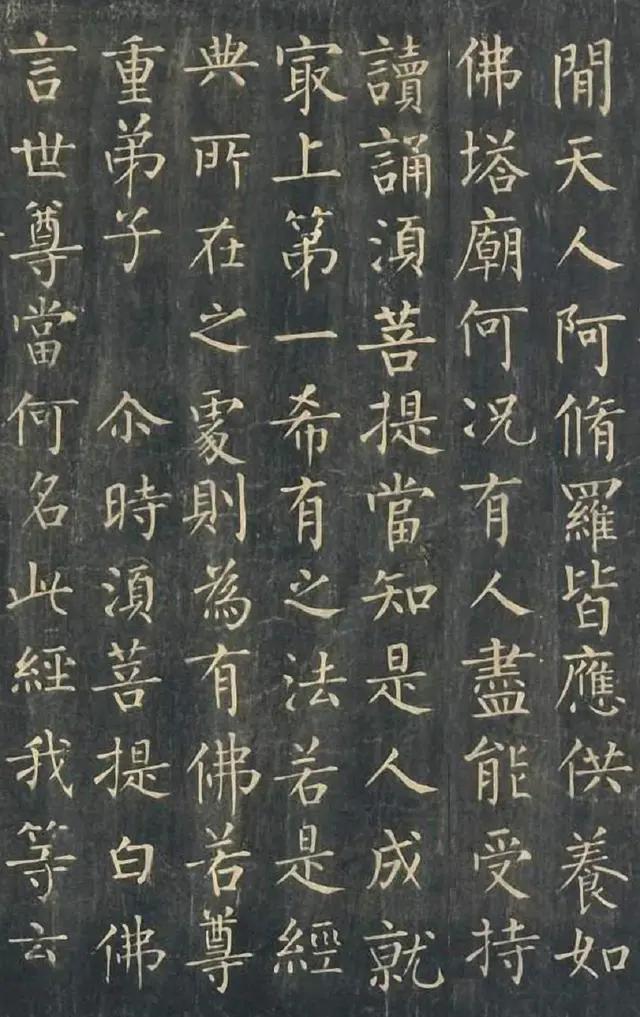 間天人阿脩羅皆應供養如
佛塔廟何况有人盡能受持
讀誦湏菩提當知是人成就
㝡上第一希有之法若是經
典所在之處則為有佛若尊
重弟子　尒時湏菩提白佛
言世尊當何名此經我等云